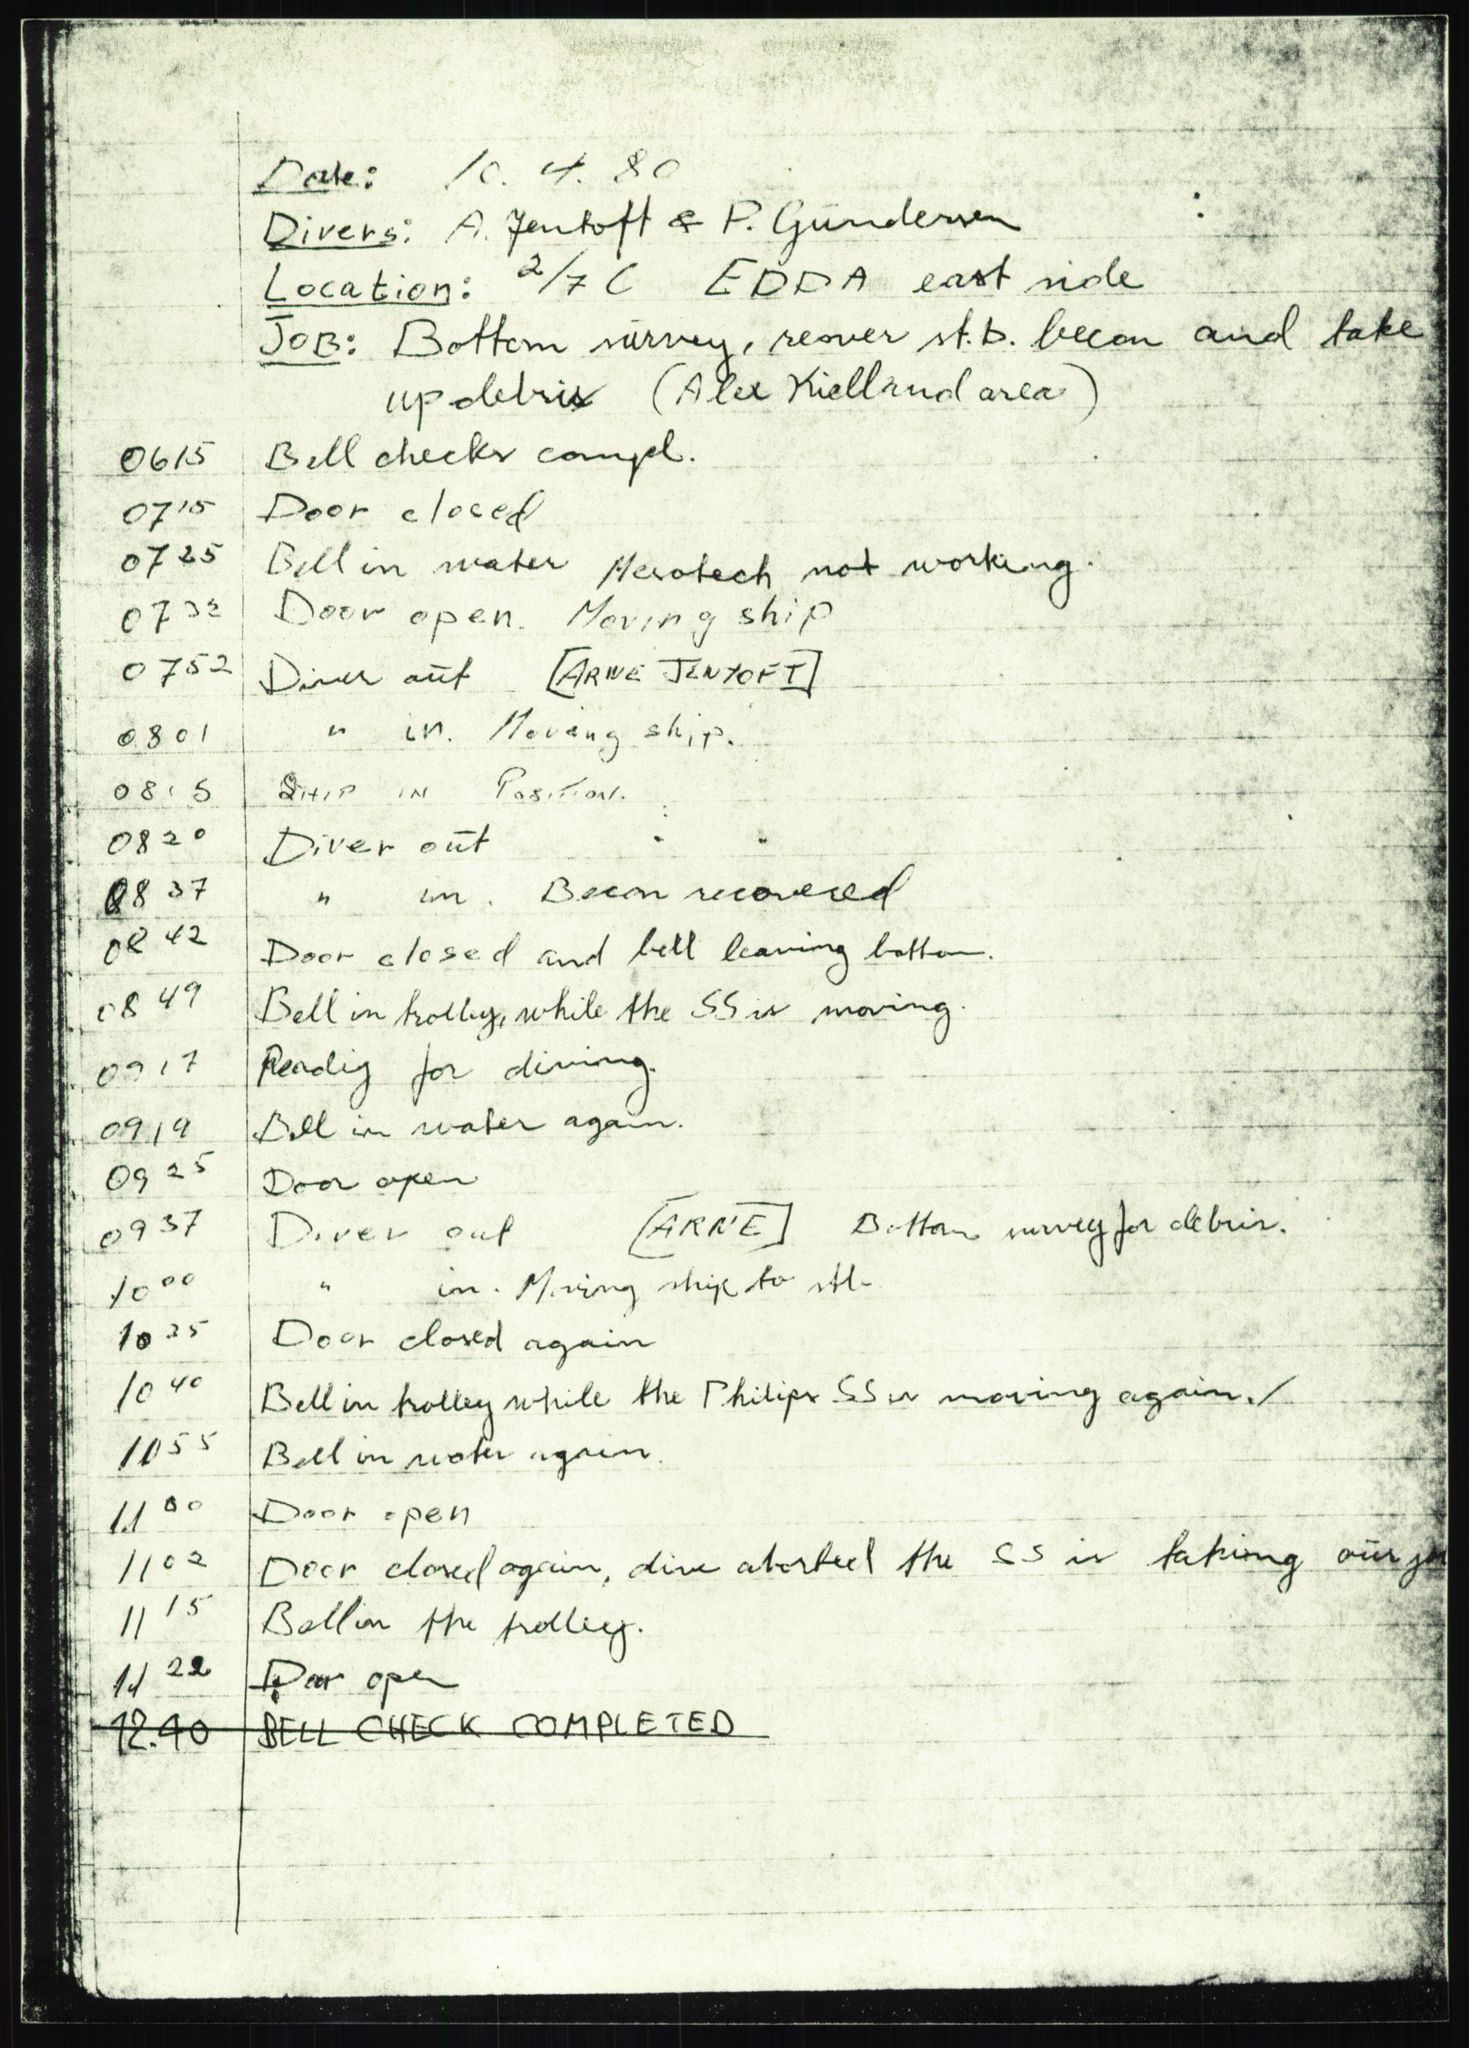 Date: 10. 4. 80
Divers: A. Jentoft & P. Gundersen
Location: 2/7 C EDDA east side
JOB: Bottom survey, recover st.b. becon and take
up debris (Alex Kielland area)
0615 Bell checks compl.
0715 Door closed
0725 Bell in water Mesotech not working.
0732 Door open. Moving ship
0752 Diver out [ARNE JENTOFT]
0801 " in. Moving ship.
0815 SHIP IN POSITION.
0820 Diver out
0837 " in. Becon recovered
0842 Door closed and bell leaving bottom.
0849 Bell in trolley, while the SS is moving.
0917 Ready for diving.
0919 Bell in water again.
0925 Door open
0937 Diver out [ARNE] Bottom survey for debris.
1000 " in. Moving ship to
1035 Door closed again
1040 Bell in trolley while the Philips SS is moving again.
1055 Bell in water again.
1100 Door open
1102 Door closed again, dive aborted the SS is taking our
1115 Bell in the trolley.
1122 Door open
12.40 BELL CHECK COMPLETED